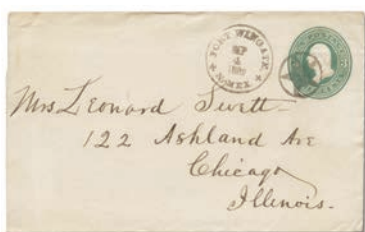 FORT WINGATE
SEP
4
N. MEX.
Mrs Leonard Swett
122 Ashland Ave
Chicago
Illinois.